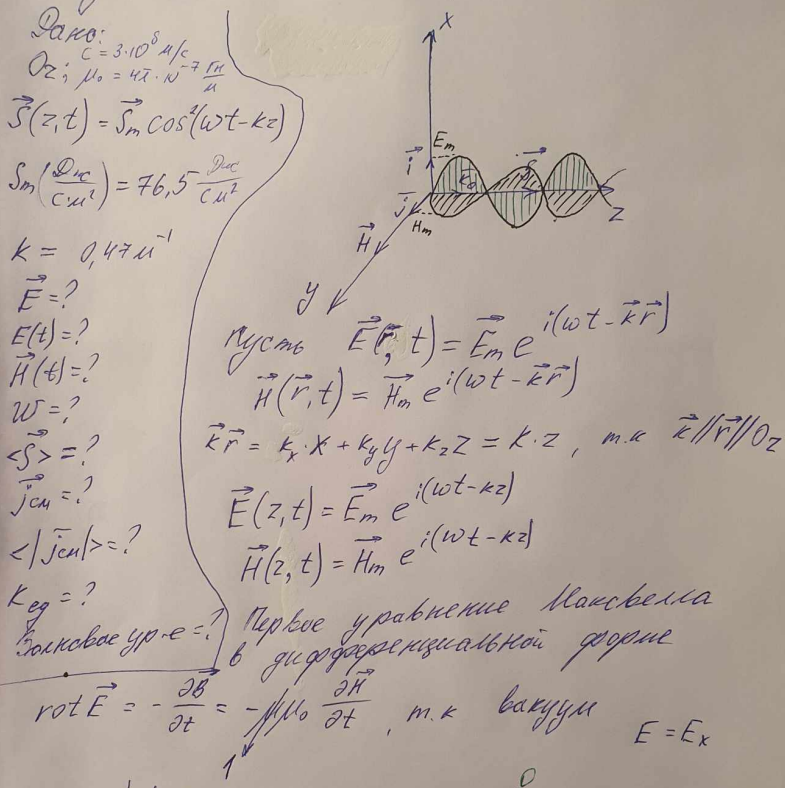 Дано:
Oz; c = 3·10⁸ м/с
μ₀ = 4π·10⁻⁷ Гн/м
S⃗(z,t) = S⃗m cos²(ωt-kz)
Sm(Дж/с·м²) = 76,5 Дж/с·м²
k = 0,47 м⁻¹
E⃗ = ?
E(t) = ?
H⃗(t) = ?
W = ?
<S⃗> = ?
j⃗см = ?
<|j⃗см|> = ?
Kед = ?
Волновое ур-е = ?
X
Em
i⃗
S⃗
j⃗
Hm
Z
H⃗
y
Пусть E⃗(r⃗, t) = E⃗m e^{i(ωt - k⃗r⃗)}
H⃗(r⃗, t) = H⃗m e^{i(ωt - k⃗r⃗)}
k⃗r⃗ = kₓ·x + k_y y + k_z z = k·z, т.к k⃗//r⃗//Oz
E⃗(z,t) = E⃗m e^{i(ωt-kz)}
H⃗(z,t) = H⃗m e^{i(ωt-kz)}
Первое уравнение Максвелла
в дифференциальной форме
rot E⃗ = - ∂B⃗/∂t = - μμ₀ ∂H⃗/∂t, т.к вакуум
1
E = Eₓ
0